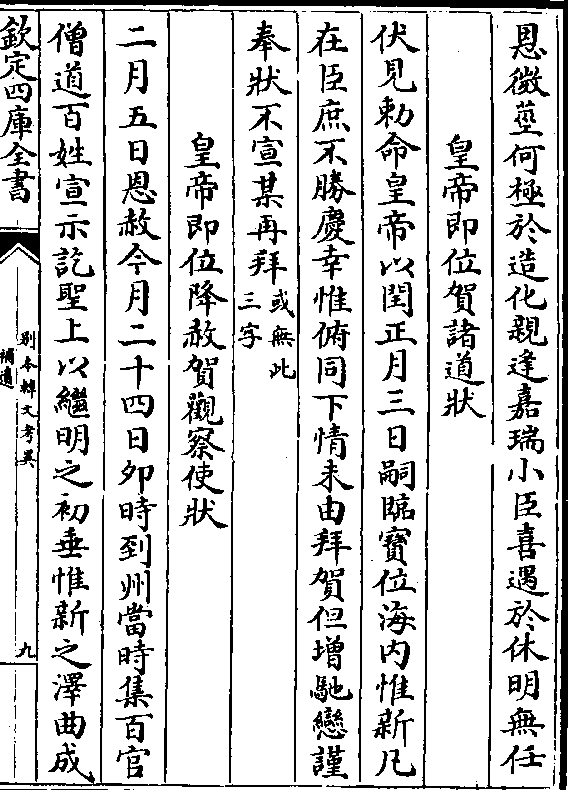 恩微莖何極於造化親逢嘉瑞小臣喜遇於休明無任
皇帝即位賀諸道狀
伏見勅命皇帝以閏正月三日嗣臨寶位海内惟新凡
在臣庶不勝慶幸惟俯同下情未由拜賀但增馳戀謹
奉狀不宣某再拜或無此三字
皇帝即位降赦賀觀察使狀
二月五日恩赦今月二十四日夘時到州當時集百官
僧道百姓宣示訖聖上以繼明之初垂惟新之澤曲成
欽定四庫全書
別本韓文考異
補遺
九